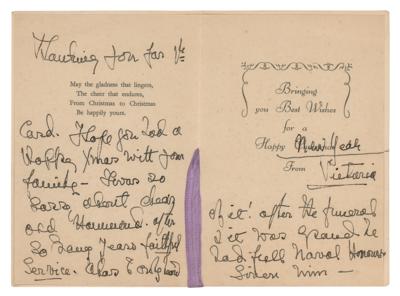 Thanking you for the
May the gladness that lingers,
The cheer that endures,
From Christmas to Christmas
Be happily yours.
Card. Hope you had a
Happy Xmas with your
family – I was so
sorry about dear
old Hammond. after
so many years faithful
Service. Alas I only heard
Bringing
you Best Wishes
for a
Happy New Year
From
Victoria
of it after the funeral
& it was grand he
had full Naval Honours
given him –